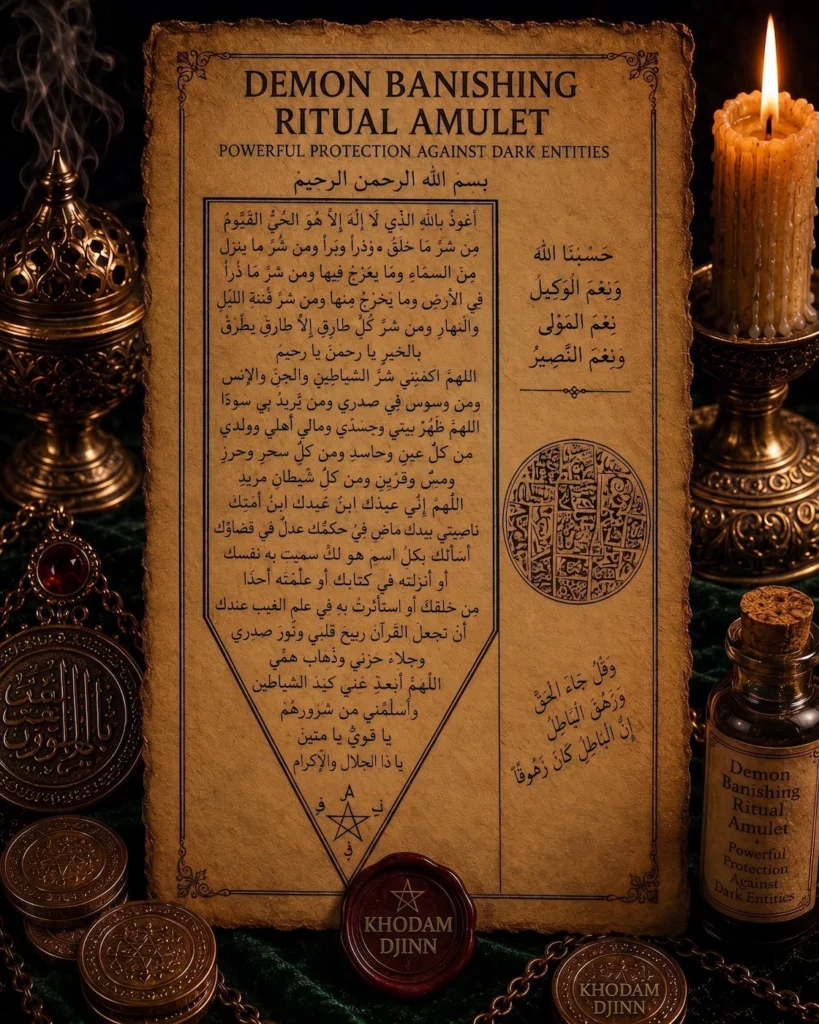 DEMON BANISHING
RITUAL AMULET
POWERFUL PROTECTION AGAINST DARK ENTITIES
بسم الله الرحمن الرحيم
أعُوذُ بالله الذِّي لَا إلَهَ إلاَّ هُوَ الحُيُّ القَيُّومُ
مِن شرِّ مَا خَلَقُ وَبَرأ ومن شُرِّ ما ينزل
مِنَ السمَاءِ ومَا يعَرُجُ فِيها ومن شرِّ مَا ذُرأَ
فِي الأرضِ وما يَخرُجُ مِنها ومن شرِّ فُتنةِ الليَلِ
والَنهارِ ومن شرِّ كُلِّ طارقِ إلاَّ طارقِ يطَرَقُ
بالخيرِ يا رحمنَ يا رحيمَ
اللهمَّ اكفنِني شرَّ الشياطِينِ والجنَ والإنس
ومن وسوس فِي صدري ومن يَّرِيدُ بِي سودًا
اللهمَّ طَهُرْ بيتي وجسَدَي ومالي أهلي وولدي
من كلِّ عينِ وحاسدِ ومن كلِّ سحرِ وحرزِ
ومسٍّ وقرَيَنِ ومن كلِّ شَيطانِ مريدِ
اللُهمَّ إنُّي عبدَك ابنُ عَبدك ابنُ أمَتِك
ناصيتي بيدك ماضِ فِيَّ حكمَّك عدلُ في قضاؤك
أسَألك بكلِّ اسمِ هو لكَ سميت به نفسك
أو أنزلته في كتابك أو علَّمْتَه أحدًا
مِن خلقكَ أو استأثرتْ بهِ في علم الغيب عندك
أن تجعلَ القَرآن ربيعَ قلبي ونُورَ صدرِي
وجلاءَ حَزني وذَهاب همِّي
اللهُمَّ أبعدِ عَني كيَدَ الشياطين
وأسلَمَّني من شرورهُمْ
يا قويُّ يا متينَ
يا ذا الجلال والإكرام
A
حَسْبُنَا اللهُ
وَنِعْمَ الْوَكِيلُ
نِعْمَ المَوْلَى
وَنِعْمَ النَّصِيرُ
وَقُلْ جَاءَ الْحَقُّ
وَزَهَقَ الْبَاطِلُ
إِنَّ الْبَاطِلَ كَانَ زَهُوقًا
KHODAM
DJINN
Demon
Banishing
Ritual
Amulet
Powerful
Protection
Against
Dark Entities
KHODAM
DJINN